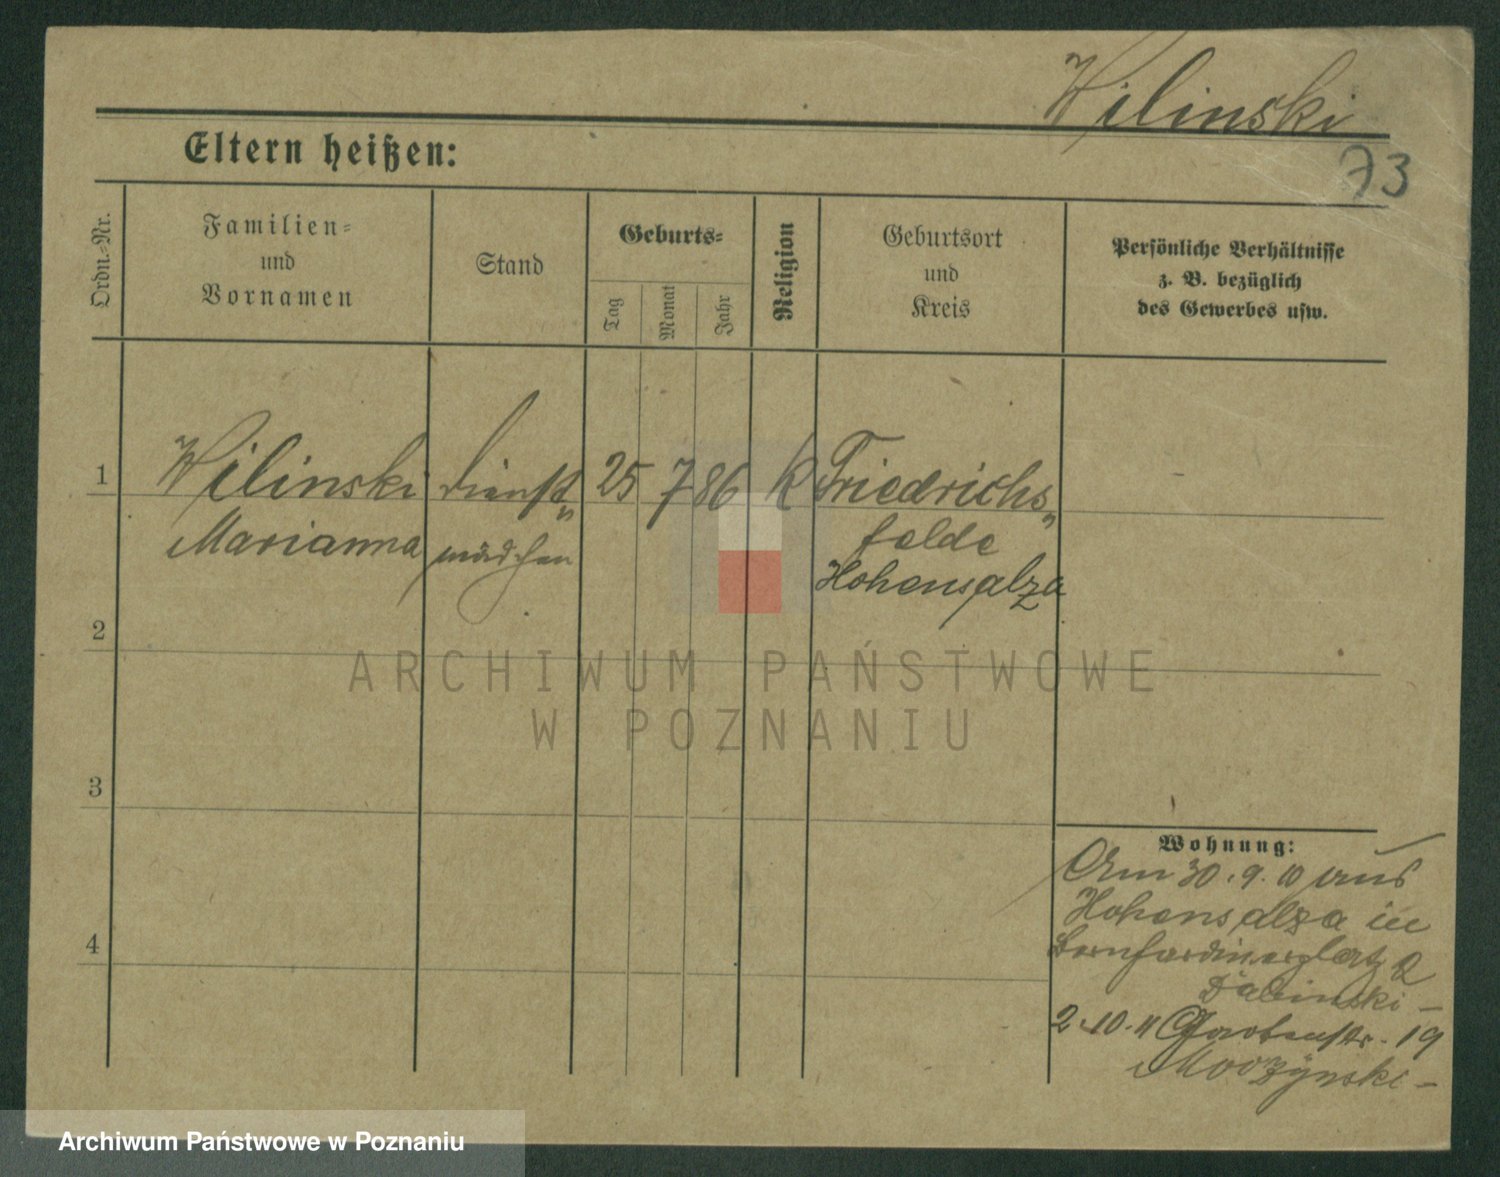 Wilinski
Eltern heißen:
73
Ordn.-Nr.
Familien-
und
Vornamen
Stand
Geburts-
Tag
Monat
Jahr
Religion
Geburtsort
und
Kreis
Persönliche Verhältnisse
z. B. bezüglich
des Gewerbes usw.
1
Wilinski
Marianna
Dienst„
mädchen
25
7
86
K
Friedrichs„
felde
Hohensalza
2
ARCHIWUM PAŃSTWOWE
W POZNANIU
3
4
Wohnung:
Am 30.9.10 aus
Hohensalza in
Bernhardinerplatz 2
2.10.11 19
Archiwum Państwowe w Poznaniu